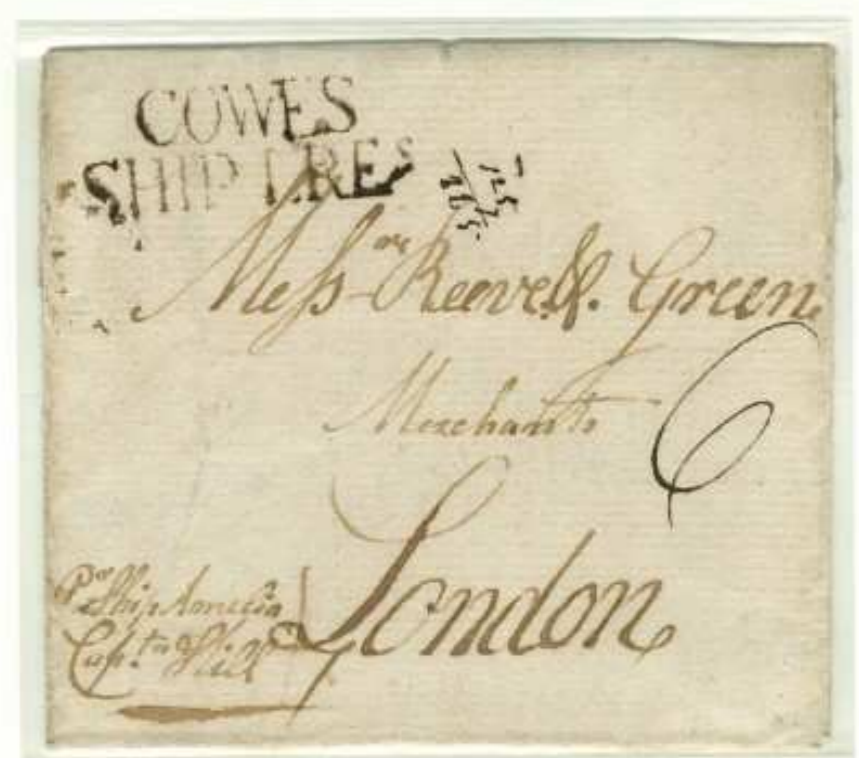 COWES
SHIP LREs
Messrs Reeve & Green
Merchants
6
London
Pr Ship Amelia
Captn